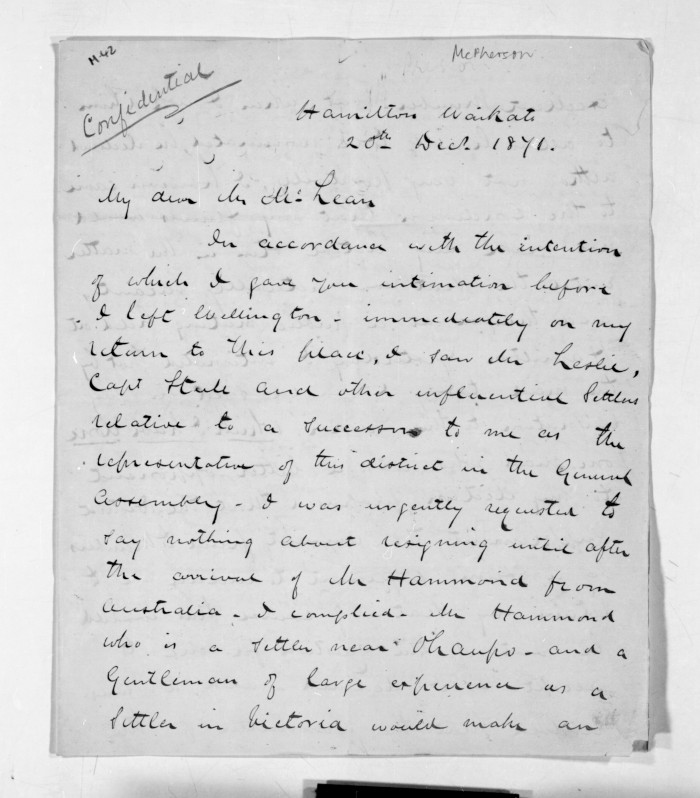 M42
McPherson
Confidential
Hamilton Waikato
20th Decr. 1871.
My dear Mr McLean
In accordance with the intention
of which I gave you intimation before
I left Wellington - immediately on my
return to this place, I saw Mr Leslie,
Capt Steele and other influential Settlers
relative to a successor to me as the
representative of this district in the General
Assembly - I was urgently requested to
say nothing about resigning until after
the arrival of Mr Hammond from
Australia - I complied - Mr Hammond
who is a settler near Ohaupo - and a
Gentleman of large experience as a
Settler in Victoria would make an